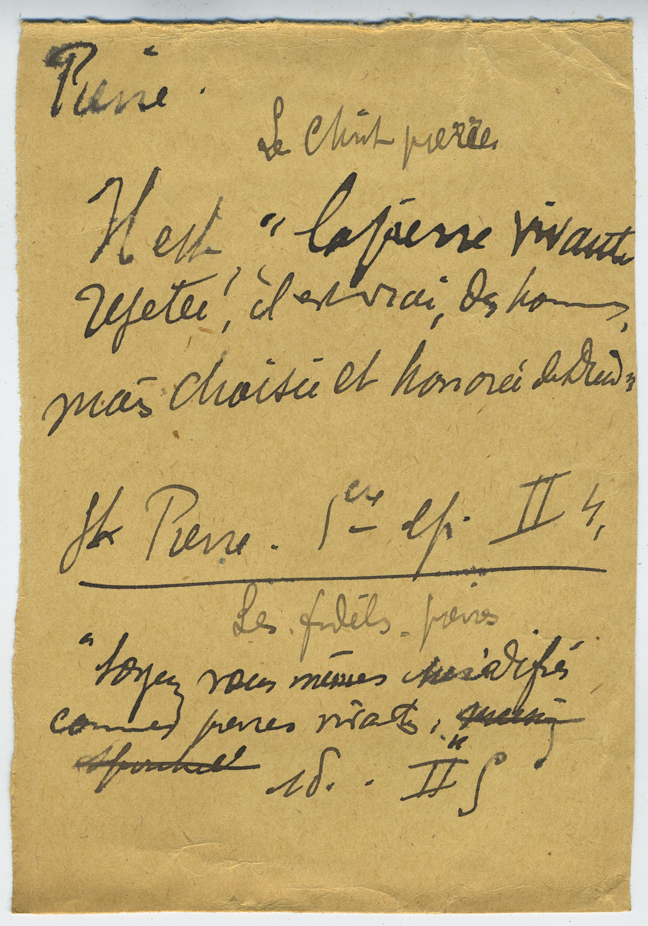 Pierre.
Le Christ pierre
Il est "la pierre vivante
rejetée, il est vrai, des hommes,
mais choisie et honorée de Dieu"
St Pierre. 1ère ép. II 4,
Les fidèles pierres
"Soyez vous mêmes édifiés
comme pierres vivantes,
id. . II 5